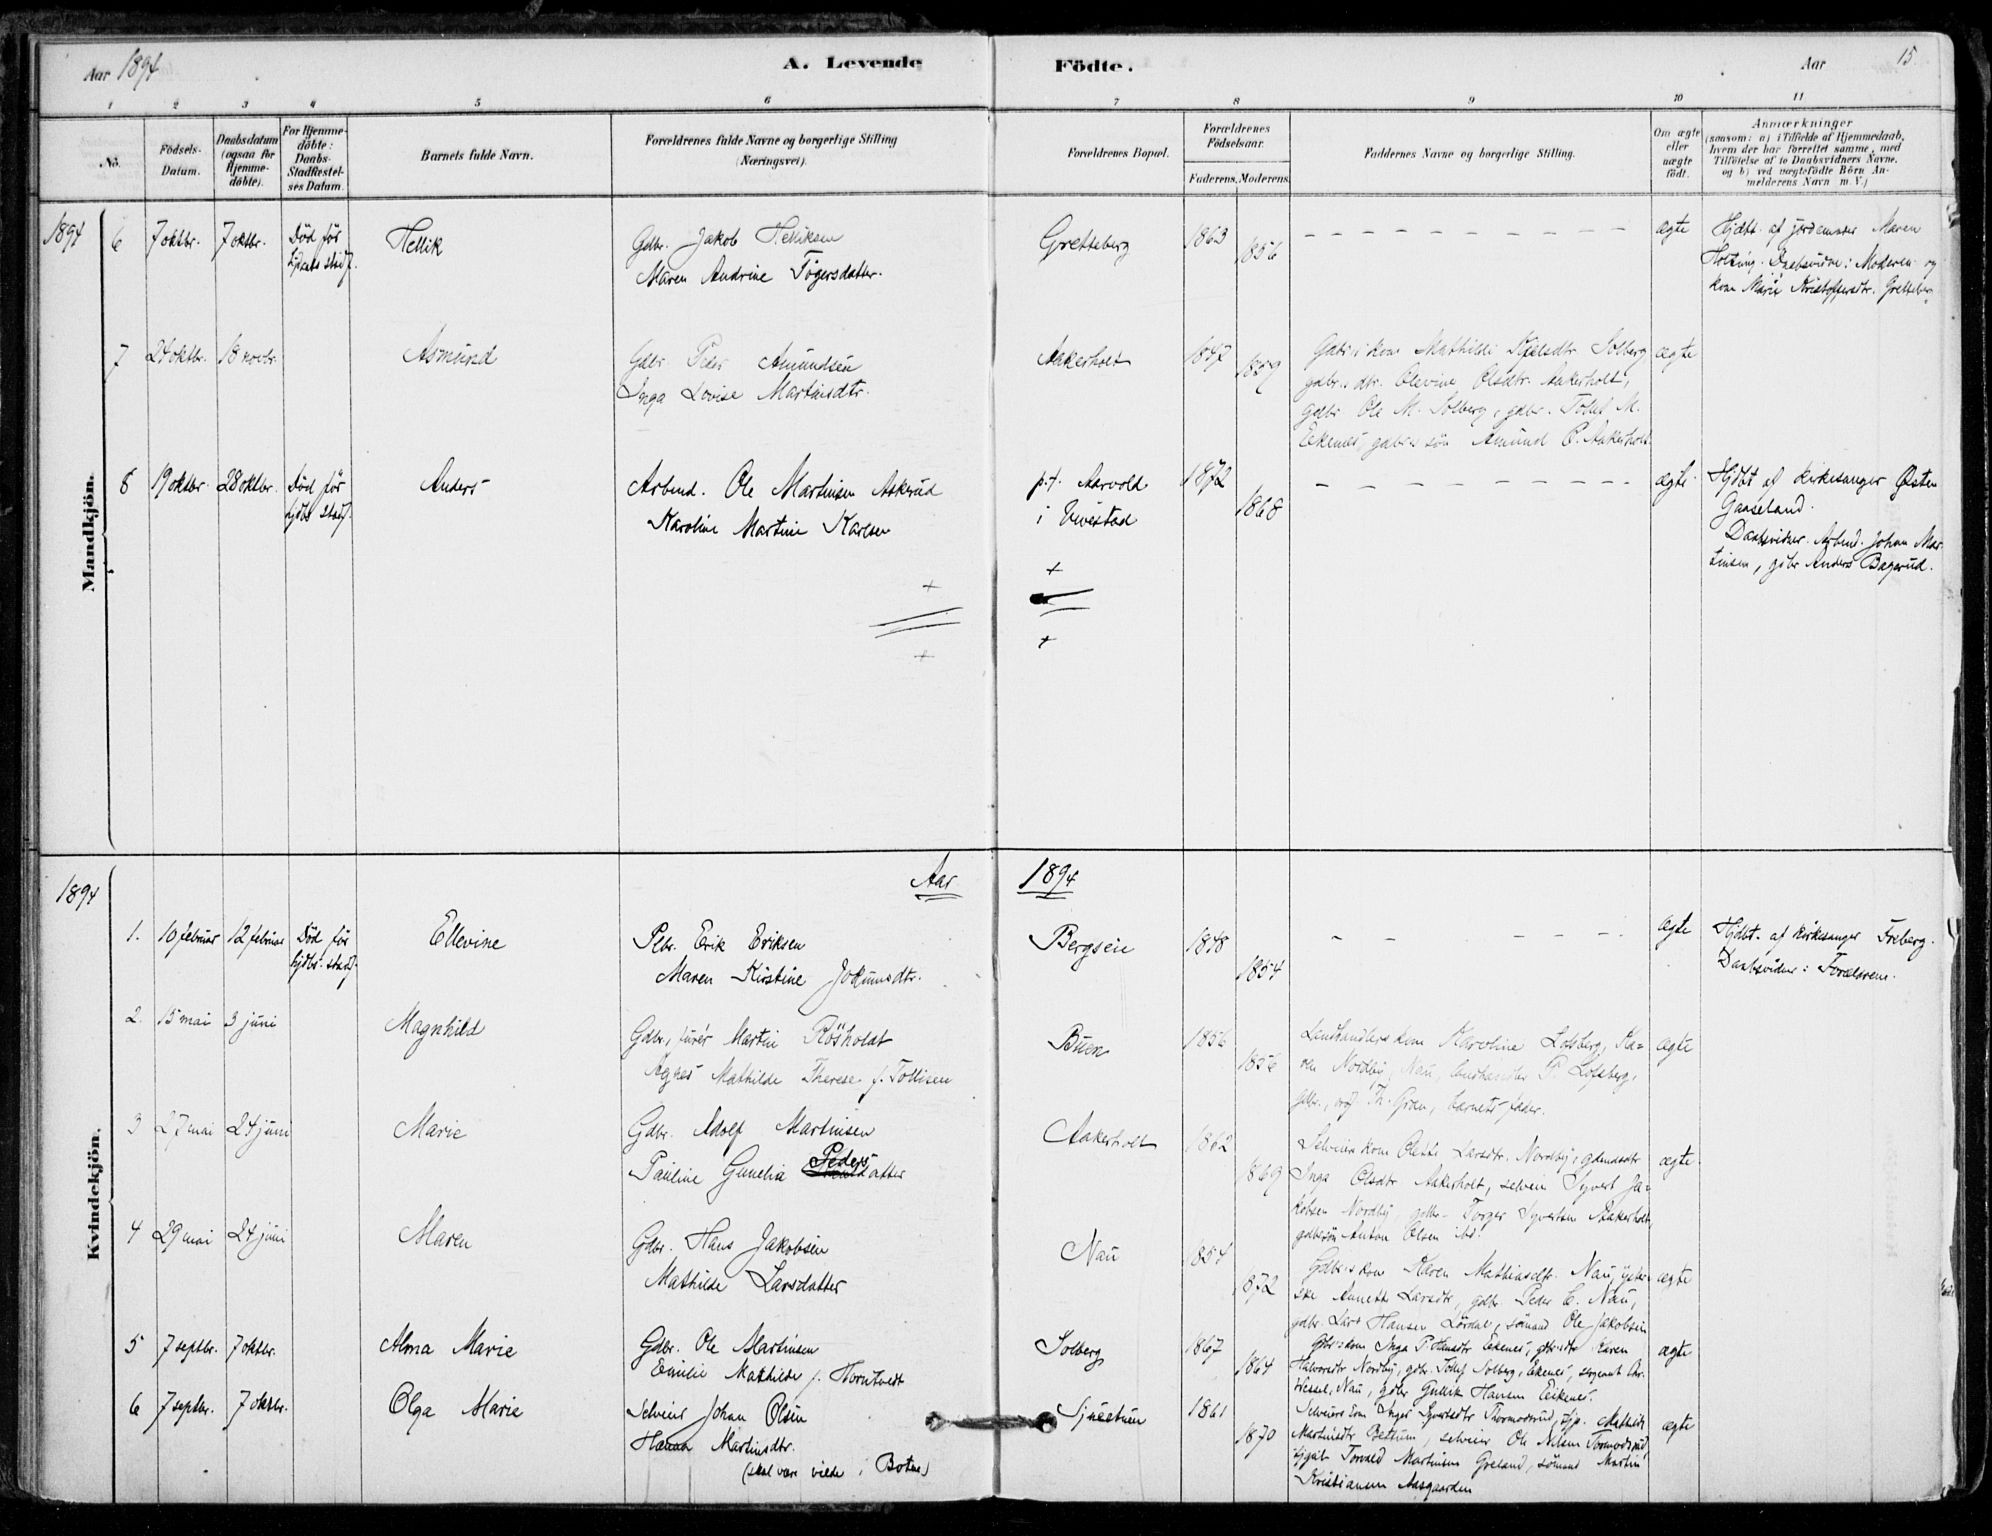 Aar 1894
A. Levende
Födte.
Aar
15.
1 2 3 4 5 6 7 8 9 10 11
No.
Födsels-
Datum.
Daabsdatum
(ogsaa for
Hjemme-
döbte).
For Hjemme-
döbte:
Daabs-
Stadfæstel-
ses Datum.
Barnets fulde Navn.
Forældrenes fulde Navne og borgerlige Stilling
(Næringsvei).
Forældrenes Bopæl.
Forældrenes
Födselsaar.
Faderens. Moderens.
Faddernes Navne og borgerlige Stilling.
Om ægte
eller
uægte
födt.
Anmærkninger
(saasom: a) i Tilfælde af Hjemmedaab,
hvem der har forrettet samme, med
Tilföielse af to Daabsvidners Navne.
og b) ved uægtefödte Börn An-
melderens Navn m. V.)
Mandkjön.
1894
6
7 oktbr.
7 oktbr.
Död för
Hellik
Gdbr. Jakob Helliksen
Maren Andrine Tögersdatter.
Gretteberg
1863
1856
ægte
Hjdbt. af jordemoder Maren
Holtung. Daabsvidne: Moderen og
kone Marie Kristoffersdtr. Gretteberg
7
24 oktbr.
18 novbr.
Asmund
Gdbr. Peder Amundsen
Inga Lovise Martinsdtr.
Aakerholt
1847
1859
Gdbr.s kone Mathilde Kjelsdtr. Solberg
gdbr.s dtr. Olevine Olsdtr. Aakerholt,
gdbr. Ole M. Solberg, gdbr. Tolef M.
Eekenes, gdbr.s sön Amund P. Aakerholt
ægte
8
19 oktbr.
28 oktbr.
Död för
hjdbs stadf.
Anders
Arbmd. Ole Martinsen Askerud
Karoline Martine Karlsen
p.t. Aarvold
i Vivestad
1872
1868
ægte
Hjdbt af kirkesanger Østen
Gaaseland.
Daabsvidner. Arbmd. Johan Mar-
tinsen, gdbr Anders Bagerud.
Kvindekjön.
1894
Aar 1894
1.
10 februar
12 februar
Död för
hjdbs. stadf.
Ellevine
Erik Eriksen
Maren Kirstine Jokumsdtr.
Bergseie
1848
1854
ægte
Hjdbt. af kirkesanger Freberg.
Daabsvidner: Forældrene.
2.
15 mai
3 juni
Magnhild
Gdbr., furér Martin Rösholdt
Agnes Mathilde Therese f. Tollisen
Buen
1856
1856
Landhandlers kone Karoline Lofsberg, Ka-
ren Nordby, Nau, landhandler P. Lofsberg,
gdbr., Th. Gran, barnets fader.
ægte
3
27 mai
24 juni
Marie
Gdbr. Adolf Martinsen
Pauline Gunelia Pedersdatter
Aakerholt
1862
1869
Selveiers kone Olette Larsdtr. Nordby,
Inga Olsdtr Aakerholt, selveier Syvert Ja-
kobsen Nordby, gdbr. Torger Syvertsen Aakerholt,
gdbrsön Anton Olsen ibd.
ægte
4
29 mai
24 juni
Maren
Gdbr. Hans Jakobsen
Mathilde Larsdatter
Nau
1854
1872
Gdbr.s kone Karen Mathiasdtr. Nau,
Annette Larsdtr, gdbr. Peder C. Nau,
gdbr. Lars Hansen Lördal, sömand Ole Jakobsen
ægte
5
7 septbr.
7 oktbr.
Alma Marie
Gdbr. Ole Martinsen
Emilie Mathilde f. Horntvedt
Solberg
1867
1864
Gdbr.s kone Inga P. Hansdtr Eekenes, gdbr.sdtr Karen
Halvorsdtr Nordby, gdbr. Tolef Solberg, Eekenes, sergeant Chr.
Wessel, Nau, gdbr Gullik Hansen Eekenes.
ægte
6
7 septbr.
7 oktbr.
Olga Marie
Selveier Johan Olsen
Hanna Martinsdtr.
(skal være viede i Botne)
1861
1870
Selveiers kone Inger Syvertsdtr Thormodsrud, pige Mathilde
Martinsdtr Bettum, selveier Ole Nilsen Tormodsrud,
Torvald Martinsen Greland, sömand Martin
Kristiansen Aasgaarden
ægte